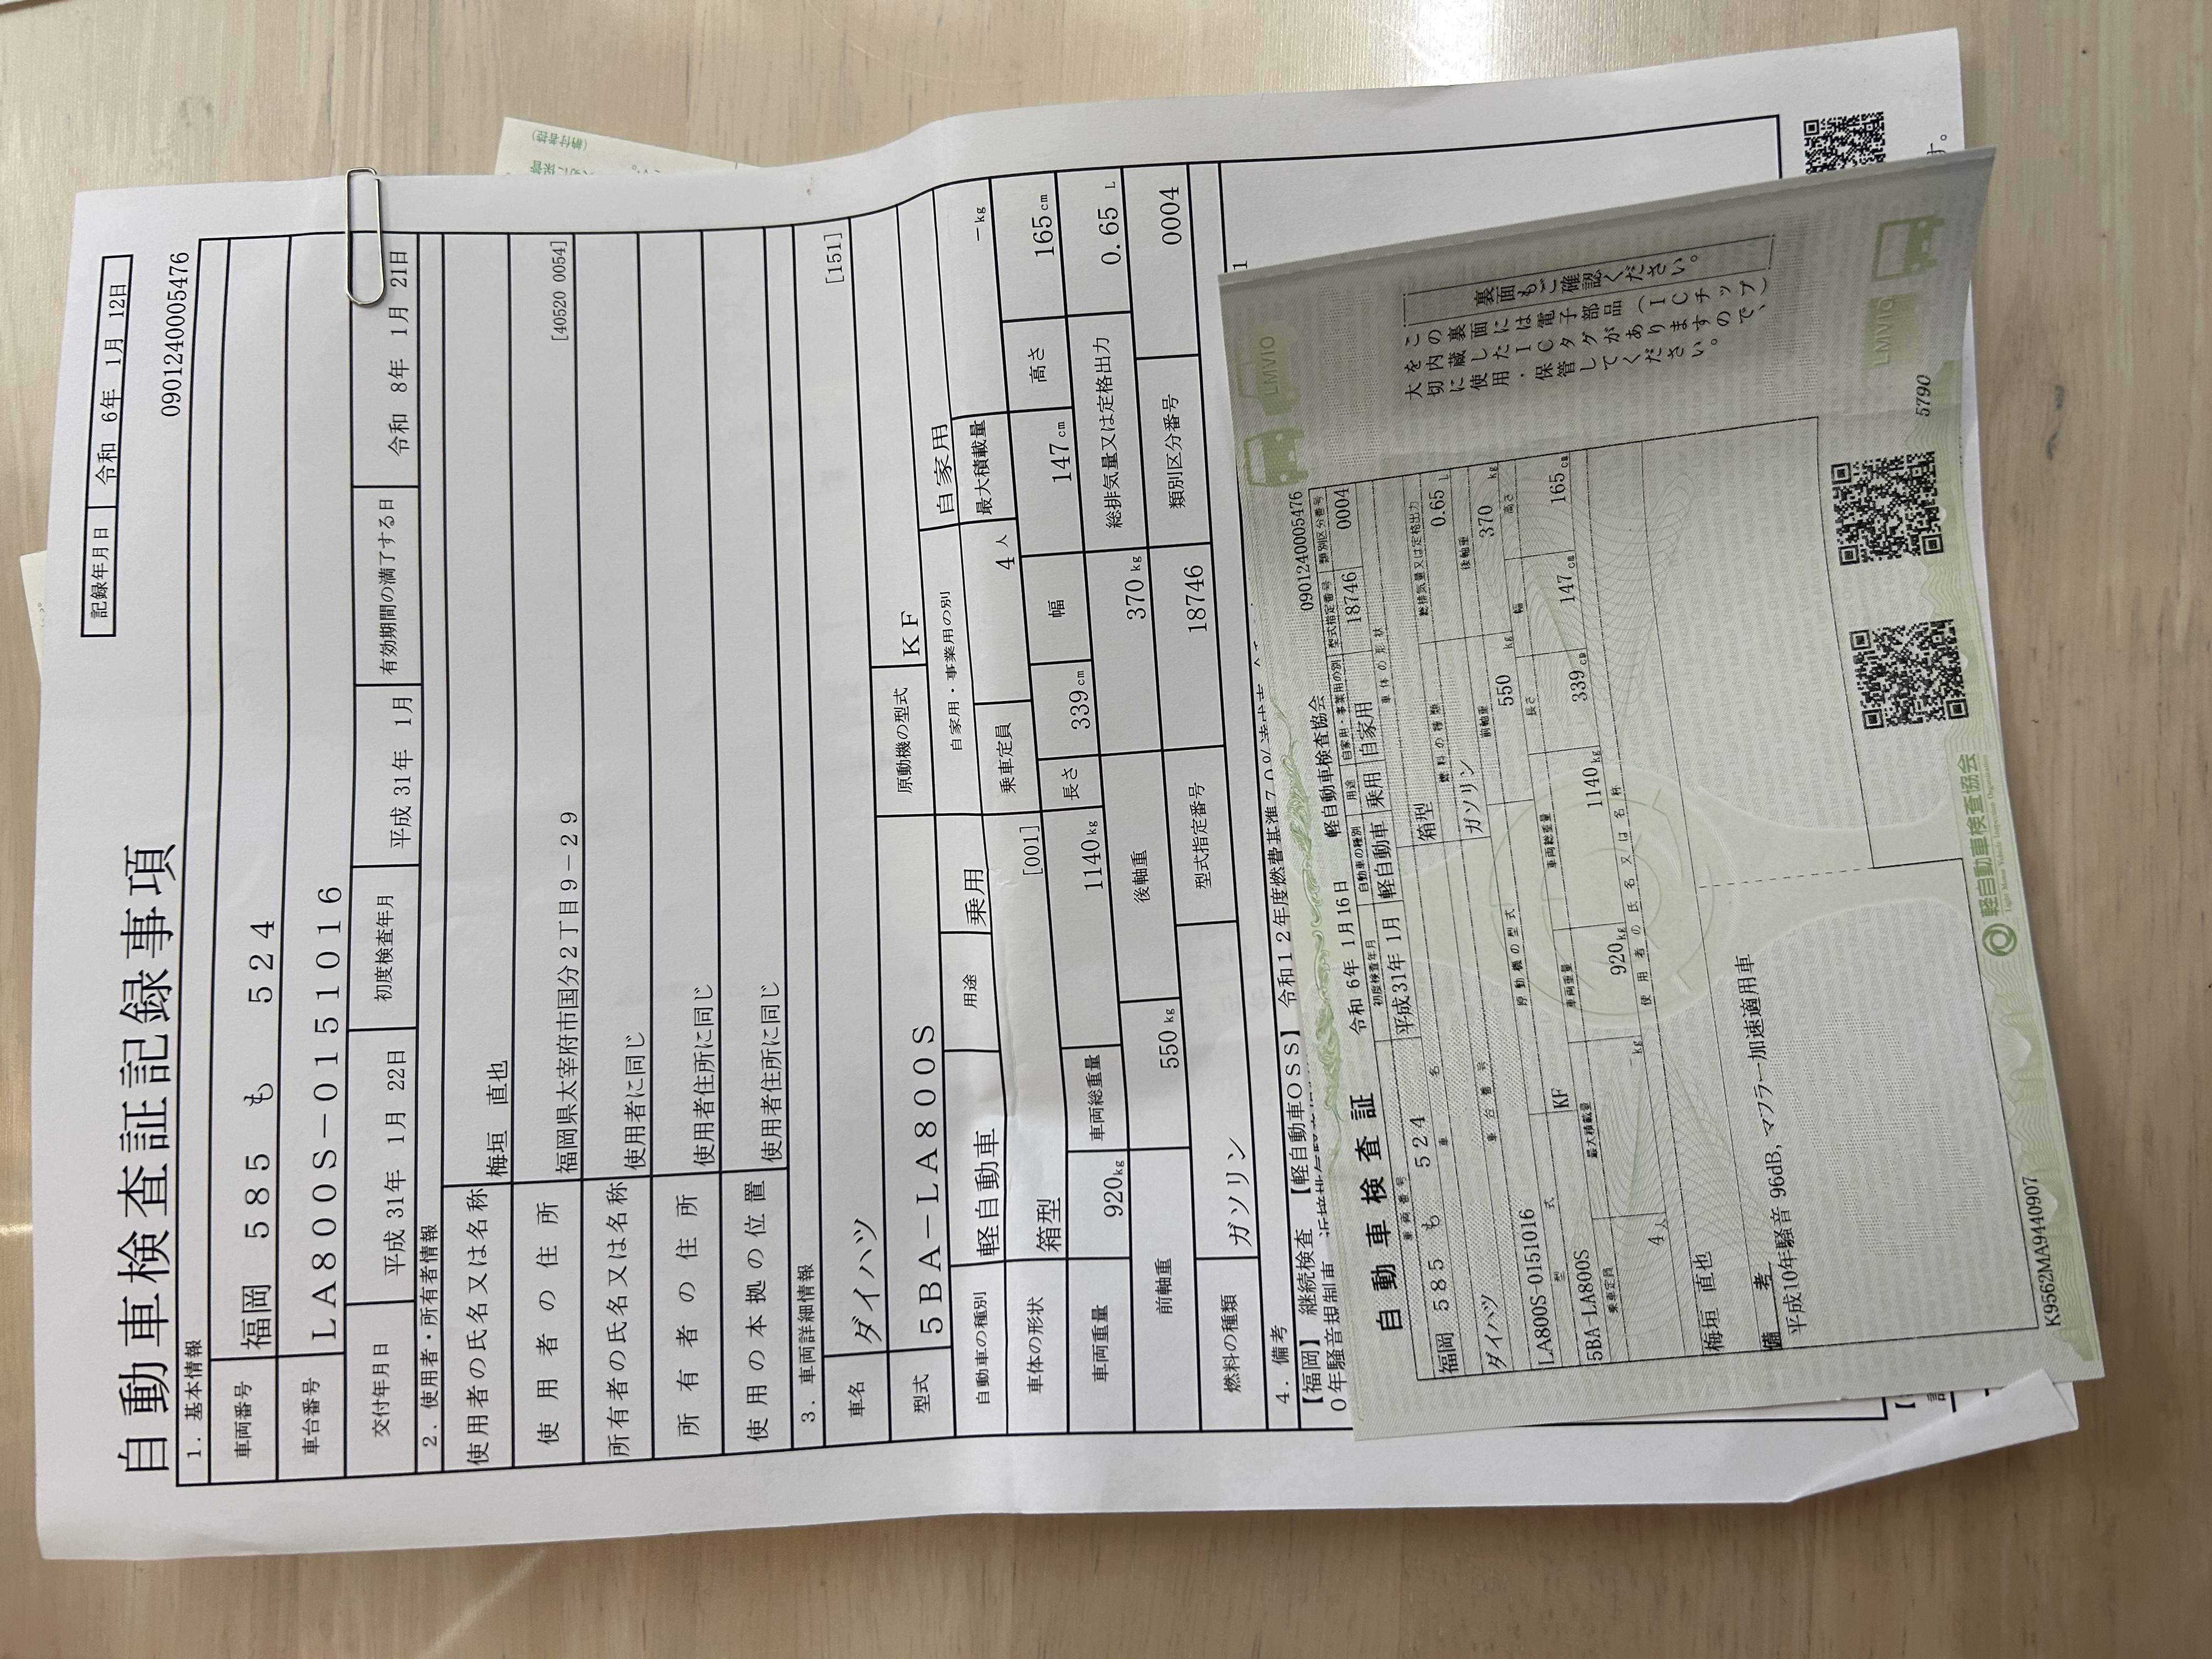 自動車検査証記録事項
記録年月日 令和 6年 1月 12日
0901240005476
1．基本情報
車両番号 福岡 585 も 524
車台番号 LA800S-0151016
交付年月日 平成 31年 1月 22日 初度検査年月 平成 31年 1月 有効期間の満了する日 令和 8年 1月 21日
2．使用者・所有者情報
使用者の氏名又は名称 梅垣 直也
使用者の住所 福岡県太宰府市国分2丁目9-29 [40520 0054]
所有者の氏名又は名称 使用者に同じ
所有者の住所 使用者住所に同じ
使用の本拠の位置 使用者住所に同じ
3．車両詳細情報
車名 ダイハツ [151]
型式 5BA-LA800S 原動機の型式 KF
自動車の種別 軽自動車 用途 乗用 自家用・事業用の別 自家用
車体の形状 箱型 [001] 乗車定員 4人 最大積載量 -kg
車両重量 920kg 車両総重量 1140kg 長さ 339cm 幅 147cm 高さ 165cm
前軸重 550kg 後軸重 370kg 総排気量又は定格出力 0.65L
燃料の種類 ガソリン 型式指定番号 18746 類別区分番号 0004
4．備考
【福岡】 継続検査 【軽自動車OSS】 令和12年度燃費基準70%達成車
0年騒音規制車
1
す。
自動車検査証
令和 6年 1月16日 軽自動車検査協会 0901240005476
車両番号 初度検査年月 自動車の種別 用途 自家用・事業用の別 型式指定番号 類別区分番号
福岡 585 も 524 平成31年 1月 軽自動車 乗用 自家用 18746 0004
車名 車体の形状
ダイハツ 箱型
車台番号 燃料の種類 総排気量又は定格出力
LA800S-0151016 ガソリン 0.65 L
型式 原動機の型式 前軸重 後軸重
5BA-LA800S KF 550 kg 370 kg
乗車定員 最大積載量 車両重量 車両総重量 長さ 幅 高さ
4人 kg 920kg 1140kg 339cm 147cm 165cm
使用者の氏名又は名称
梅垣 直也
備考
平成10年騒音 96dB, マフラー加速適用車
K9562MA9440907
軽自動車検査協会
Light Motor Vehicle Inspection Organization
裏面もご確認ください。
この裏面には電子部品（ICチップ）
を内蔵したICタグがありますので、
大切に使用・保管してください。
LMVIO
LMVIO
5790